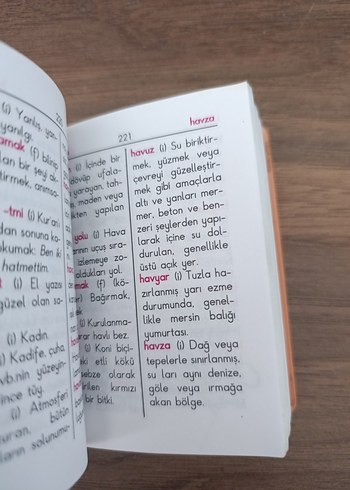 (i) Yanlış, yan-
yanılgı.
(f) bilinç
(i) Kur'an'ı
okumak: Ben iki
hatmettim.
(i) El yazısı
güzel olan
(i) Kadın.
(i) Kadife, çuha,
vb.nin yüzeyin-
ince tüy.
(i) Atmosfer.
bütün
221
havza
(i) İçinde bir
dövüp ufala-
yarayan, tah-
maden veya
yapılan
yolu (i) Hava
uçuş sıra-
izlemeye zo-
oldukları yol.
(f) (kö-
Bağırmak,
(i) Kurulanma-
yarar havlı bez.
(i) Koni biçi-
etli kökü
sebze olarak
kırmızı
bir bitki.
havuz (i) Su biriktir-
mek, yüzmek veya
çevreyi güzelleştir-
mek gibi amaçlarla
altı ve yanları mer-
mer, beton ve ben-
zeri şeylerden yapı-
larak içine su dol-
durulan, genellikle
üstü açık yer.
havyar (i) Tuzla ha-
zırlanmış yarı ezme
durumunda, genel-
likle mersin balığı
yumurtası.
havza (i) Dağ veya
tepelerle sınırlanmış,
su ları aynı denize,
göle veya ırmağa
akan bölge.